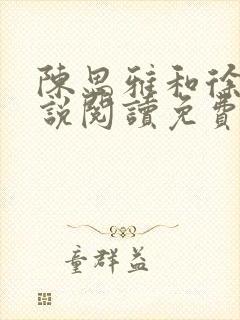 陳思雅和徐
說閱讀免費
童群益